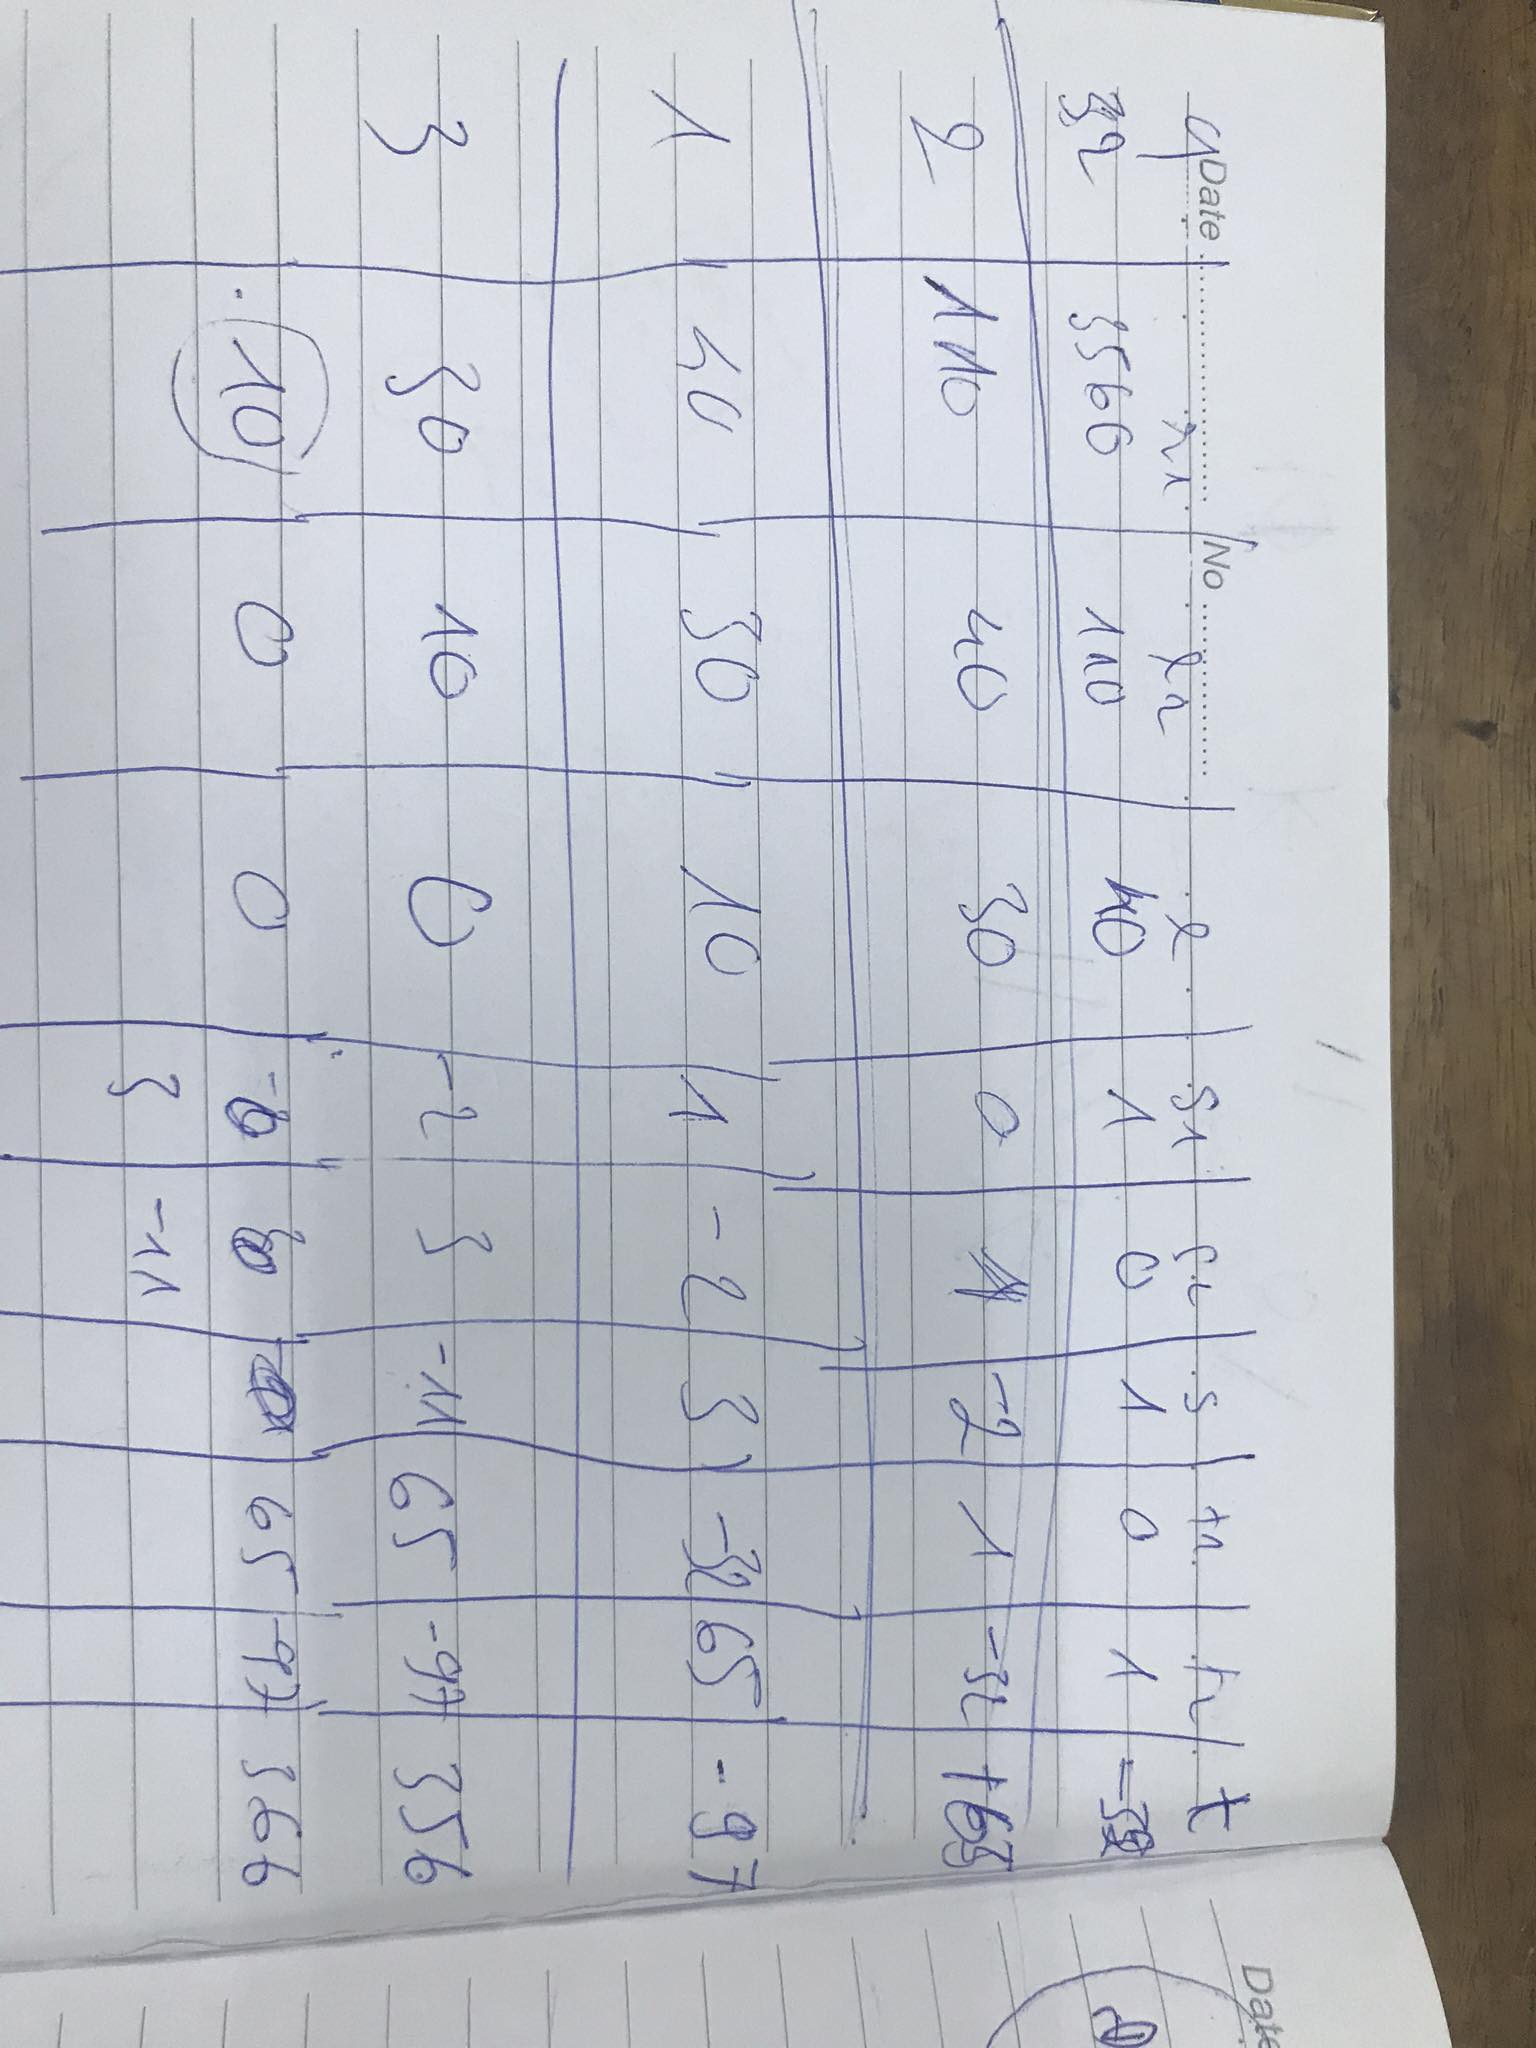 Date ........................ No ................. Date
q r1 r2 r s1 s2 s t1 t2 t
32 3560 110 40 1 0 1 0 1 -32
2 110 40 30 0 1 -2 1 -32 +65
1 40 30 10 1 -2 3 -32 65 -97
3 30 10 0 -2 3 -11 65 -97 356
10 0 0 65 -97 366
3 -11